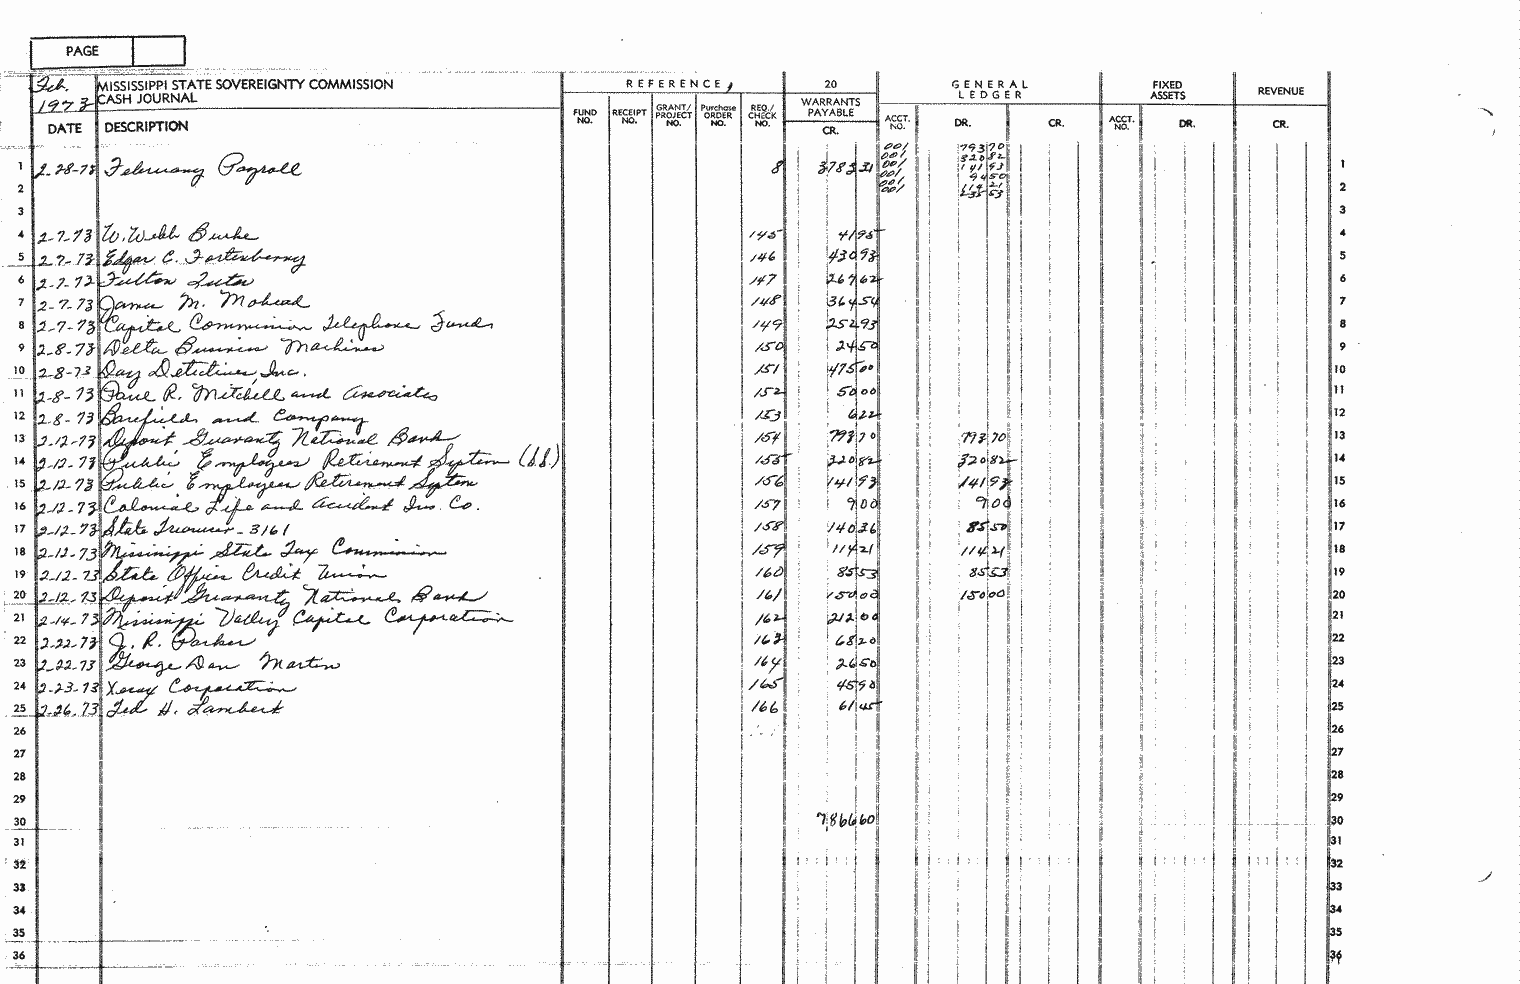 PAGE
Feb. 1973 MISSISSIPPI STATE SOVEREIGNTY COMMISSION CASH JOURNAL
REFERENCE, 20 GENERAL LEDGER FIXED ASSETS REVENUE
DATE DESCRIPTION FUND NO. RECEIPT NO. GRANT/PROJECT NO. Purchase ORDER NO. REQ./CHECK NO. WARRANTS PAYABLE CR. ACCT. NO. DR. CR. ACCT. NO. DR. CR.
001 793 70
001 320 82
1 2-28-73 February Payroll 8 3783 31 001 141 93 1
001 94 50
2 001 114 21 2
001 235 53
3 3
4 2-7-73 W. Webb Burke 145 41 95 4
5 2-7-73 Edgar C. Fortenberry 146 430 93 5
6 2-7-73 Fulton Tutor 147 267 62 6
7 2-7-73 James M. Mohead 148 364 54 7
8 2-7-73 Capitol Commission Telephone Fund 149 252 93 8
9 2-8-73 Delta Business Machines 150 24 50 9
10 2-8-73 Day Detectives, Inc. 151 475 00 10
11 2-8-73 Paul R. Mitchell and Associates 152 50 00 11
12 2-8-73 Barefield and Company 153 6 22 12
13 2-12-73 Deposit Guaranty National Bank 154 793 70 793 70 13
14 2-12-73 Public Employees Retirement System (S.S.) 155 320 82 320 82 14
15 2-12-73 Public Employees Retirement System 156 141 93 141 93 15
16 2-12-73 Colonial Life and Accident Ins. Co. 157 9 00 9 00 16
17 2-12-73 State Treasurer - 3161 158 140 36 85 50 17
18 2-12-73 Mississippi State Tax Commission 159 114 21 114 21 18
19 2-12-73 State Offices Credit Union 160 85 53 85 53 19
20 2-12-73 Deposit Guaranty National Bank 161 150 00 150 00 20
21 2-14-73 Mississippi Valley Capitol Corporation 162 212 00 21
22 2-22-73 J. R. Parker 163 68 20 22
23 2-22-73 George Dan Martin 164 26 50 23
24 2-23-73 Xerox Corporation 165 45 90 24
25 2-26-73 Ted H. Lambert 166 61 45 25
26 26
27 27
28 28
29 29
30 7866 60 30
31 31
32 32
33 33
34 34
35 35
36 36